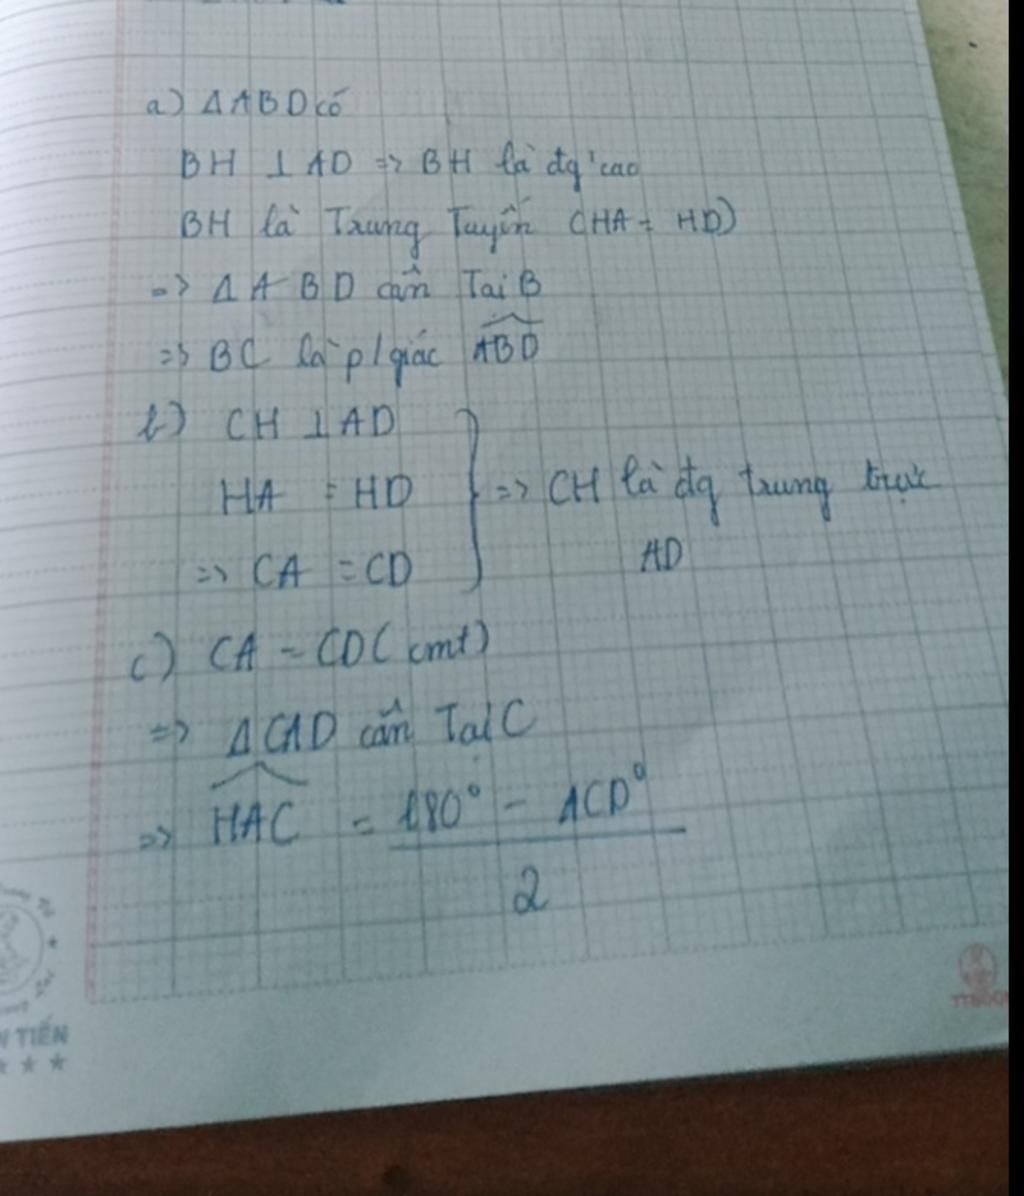 a) ΔABD có
BH ⊥ AD => BH là đg' cao
BH là Trung Tuyến (HA = HD)
=> ΔABD cân Tại B
=> BC là p/giác \widehat{ABD}
b) CH ⊥ AD
HA = HD } => CH là đg trung trực
=> CA = CD AD
c) CA = CD (cmt)
=> ΔCAD cân Tại C
=> \widehat{HAC} = \frac{180° - ACD°}{2}
TIẾN
★ ★ ★